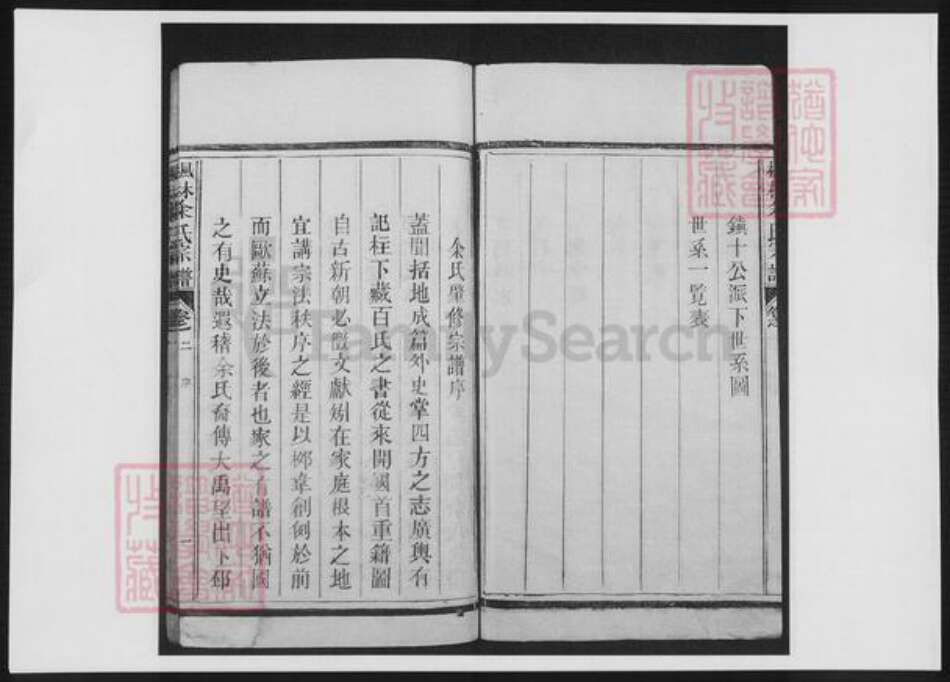 鎮十公派下世系圖
世系一覧表
余氏肇修宗譜序
蓋聞括地成篇外史掌四方之志廣輿有
記柱下藏百氏之書從來開國首重籍圖
自古新朝必徵文獻矧在家庭根本之地
宜講宗法秩序之經是以鄭韋創例於前
而歐蘇立法於後者也家之有譜不猶國
之有史哉遐稽余氏裔傳大禹望出下邳
楓林余氏宗譜
卷二
序
一
FamilySearch